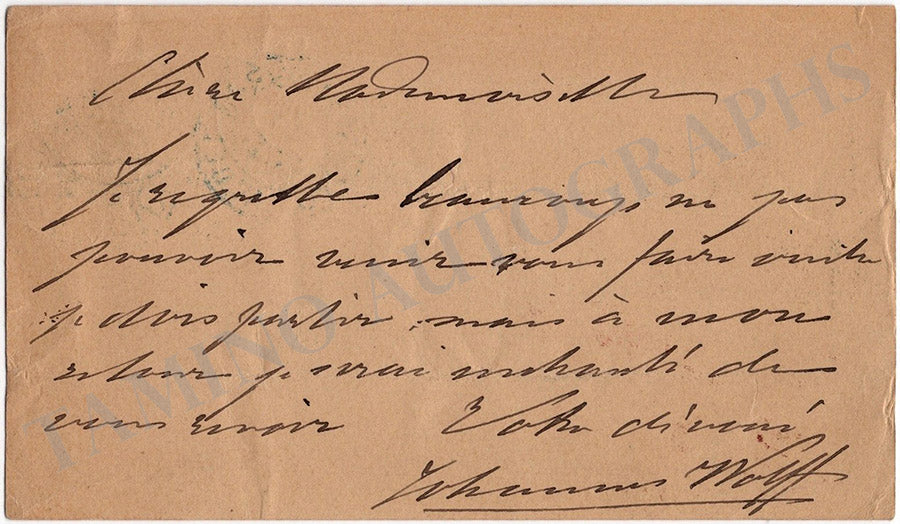 Chère Mademoiselle
Je regrette beaucoup ne pas
pouvoir venir vous faire visite
je dois partir, mais à mon
retour je serai enchanté de
vous revoir Votre dévoué
Johannes Wolff
TAMINO AUTOGRAPHS